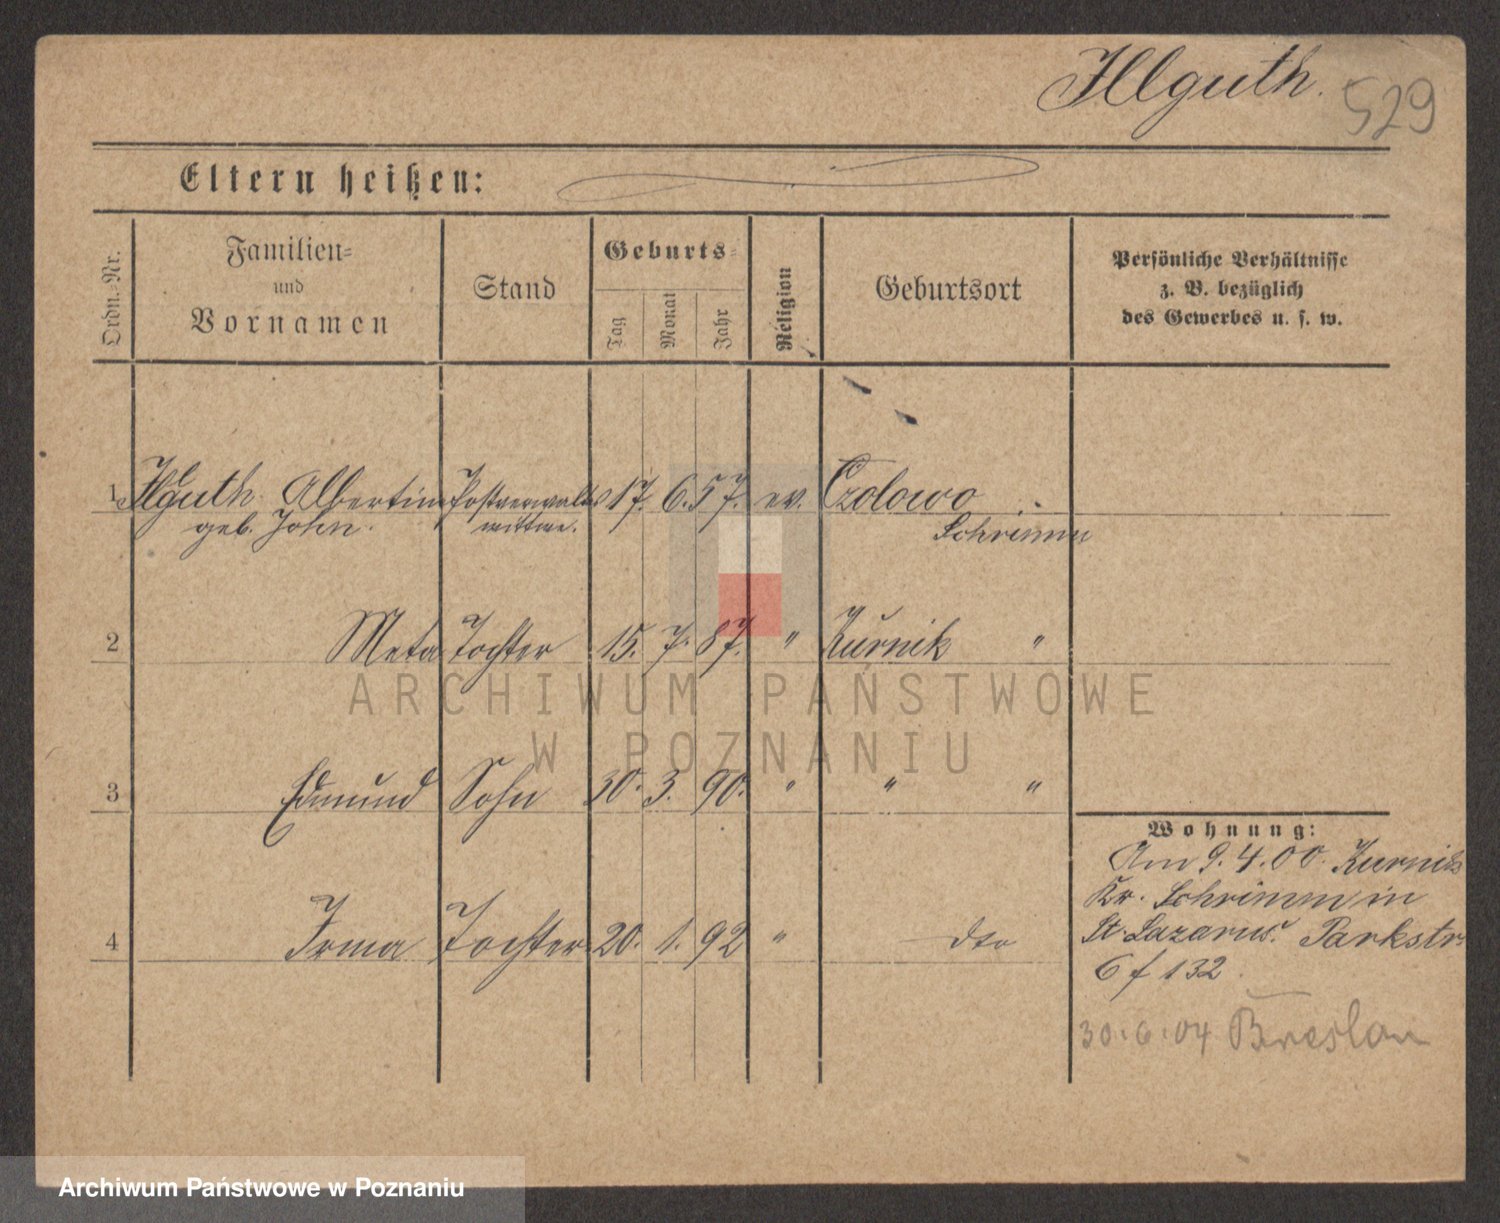 Illguth. 529
Eltern heißen:
Ordn.-Nr.
Familien-
und
Vornamen
Stand
Geburts-
Tag
Monat
Jahr
Religion
Geburtsort
Persönliche Verhältnisse
z. B. bezüglich
des Gewerbes u. s. w.
1 Illguth Albertine Postverwalter 17. 6. 57. ev. Czolowo
geb. John. wittwe. Schrimm
2 Meta Tochter 15. 7. 87. " Kurnik "
ARCHIWUM PAŃSTWOWE
W POZNANIU
3 Edmund Sohn 30. 3. 90. " " "
4 Irma Tochter 20. 1. 92 " dto
Wohnung:
Am 9.4.00. Kurnik
Kr. Schrimm in
St. Lazarus. Parkstr.
6 f 132
30.6.04 Breslau
Archiwum Państwowe w Poznaniu